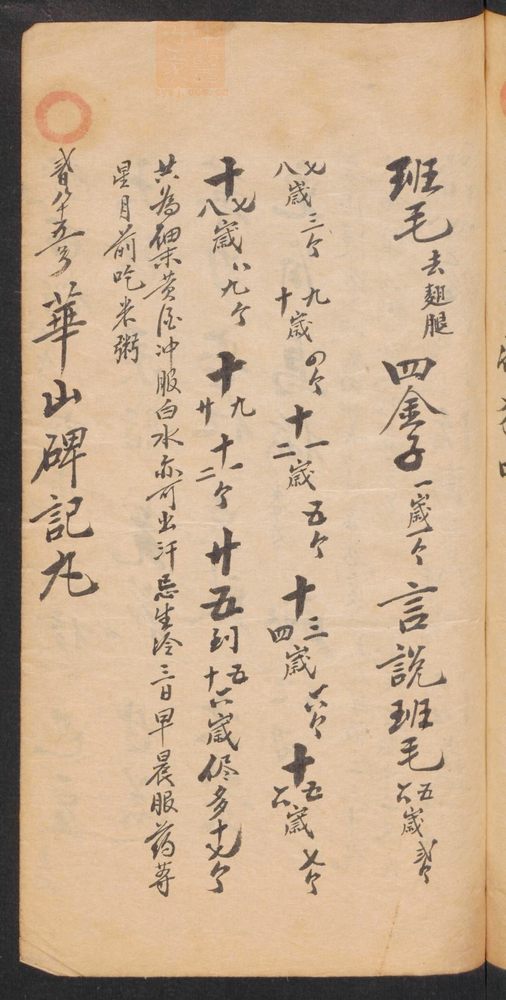 班毛去翅腿四金子一歲一个言說班毛五六歲貳个
七八歲三个九十歲四个十一二歲五个十三四歲六个十五六歲七个
十七八歲八九个十九廿十一二个廿五到五十六歲侭多十七个
共為細末黃酒冲服白水亦可出汗忌生冷三日早晨服药等
星月前吃米粥
八十五号華山碑記丸